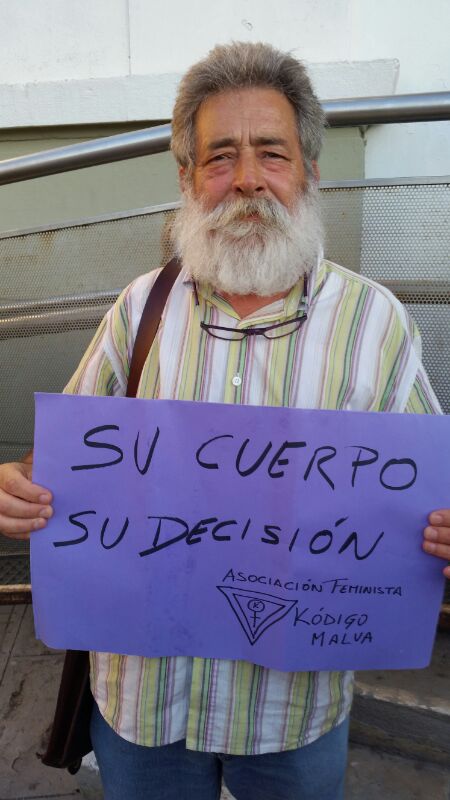 SU CUERPO
SU DECISIÓN
ASOCIACIÓN FEMINISTA
KÓDIGO
MALVA